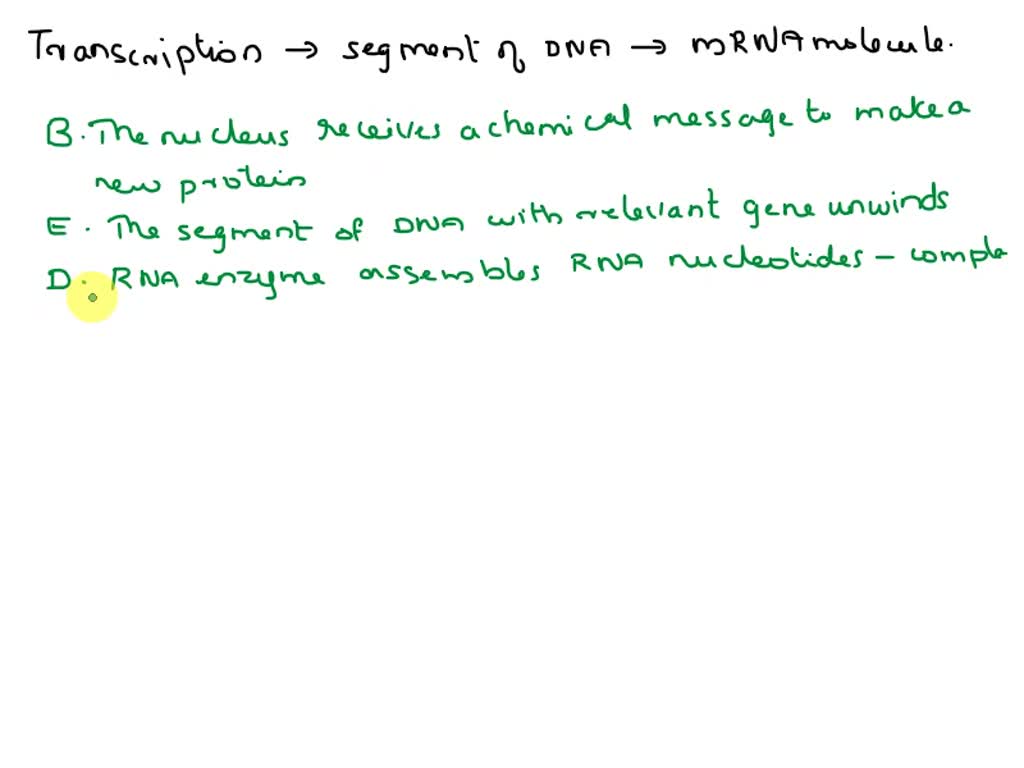 Transcription → segment of DNA → mRNA molecule.
B. The nucleus receives a chemical message to make a
new protein
E. The segment of DNA with relevant gene unwinds
D. RNA enzyme assembles RNA nucleotides - comple